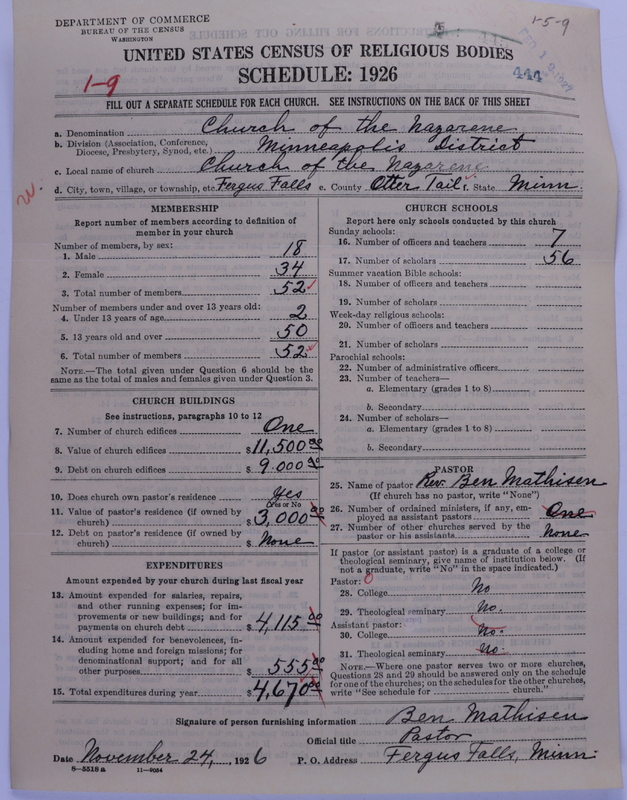 DEPARTMENT OF COMMERCE
BUREAU OF THE CENSUS
WASHINGTON
1-5-9
444
UNITED STATES CENSUS OF RELIGIOUS BODIES
SCHEDULE: 1926
1-9
FILL OUT A SEPARATE SCHEDULE FOR EACH CHURCH. SEE INSTRUCTIONS ON THE BACK OF THIS SHEET
a. Denomination Church of the Nazarene
b. Division (Association, Conference, Diocese, Presbytery, Synod, etc.) Minneapolis District
c. Local name of church Church of the Nazarene
d. City, town, village, or township, etc. Fergus Falls e. County Otter Tail f. State Minn.
MEMBERSHIP
Report number of members according to definition of
member in your church
Number of members, by sex:
1. Male 18
2. Female 34
3. Total number of members 52
Number of members under and over 13 years old:
4. Under 13 years of age 2
5. 13 years old and over 50
6. Total number of members 52
NOTE.—The total given under Question 6 should be
the same as the total of males and females given under Question 3.
CHURCH BUILDINGS
See instructions, paragraphs 10 to 12
7. Number of church edifices One
8. Value of church edifices $ 11,500 00
9. Debt on church edifices $ 9.000 00
10. Does church own pastor's residence Yes
Yes or No
11. Value of pastor's residence (if owned by
church) $ 3,000 00
12. Debt on pastor's residence (if owned by
church) $ None
EXPENDITURES
Amount expended by your church during last fiscal year
13. Amount expended for salaries, repairs,
and other running expenses; for im-
provements or new buildings; and for
payments on church debt $ 4,115 00
14. Amount expended for benevolences, in-
cluding home and foreign missions; for
denominational support; and for all
other purposes $ 555 00
15. Total expenditures during year $ 4,670 00
CHURCH SCHOOLS
Report here only schools conducted by this church
Sunday schools:
16. Number of officers and teachers 7
17. Number of scholars 56
Summer vacation Bible schools:
18. Number of officers and teachers
19. Number of scholars
Week-day religious schools:
20. Number of officers and teachers
21. Number of scholars
Parochial schools:
22. Number of administrative officers
23. Number of teachers—
a. Elementary (grades 1 to 8)
b. Secondary
24. Number of scholars—
a. Elementary (grades 1 to 8)
b. Secondary
PASTOR
25. Name of pastor Rev. Ben Mathisen
(If church has no pastor, write "None")
26. Number of ordained ministers, if any, em-
ployed as assistant pastors One
27. Number of other churches served by the
pastor or his assistants None
If pastor (or assistant pastor) is a graduate of a college or
theological seminary, give name of institution below. (If
not a graduate, write "No" in the space indicated.)
Pastor: 0
28. College No
29. Theological seminary No.
Assistant pastor:
30. College No.
31. Theological seminary No.
NOTE.—Where one pastor serves two or more churches,
Questions 28 and 29 should be answered only on the schedule
for one of the churches; on the schedules for the other churches,
write "See schedule for church."
Signature of person furnishing information Ben Mathisen
Official title Pastor
Date November 24, 1926 P. O. Address Fergus Falls, Minn.
8—5518 a 11—9054